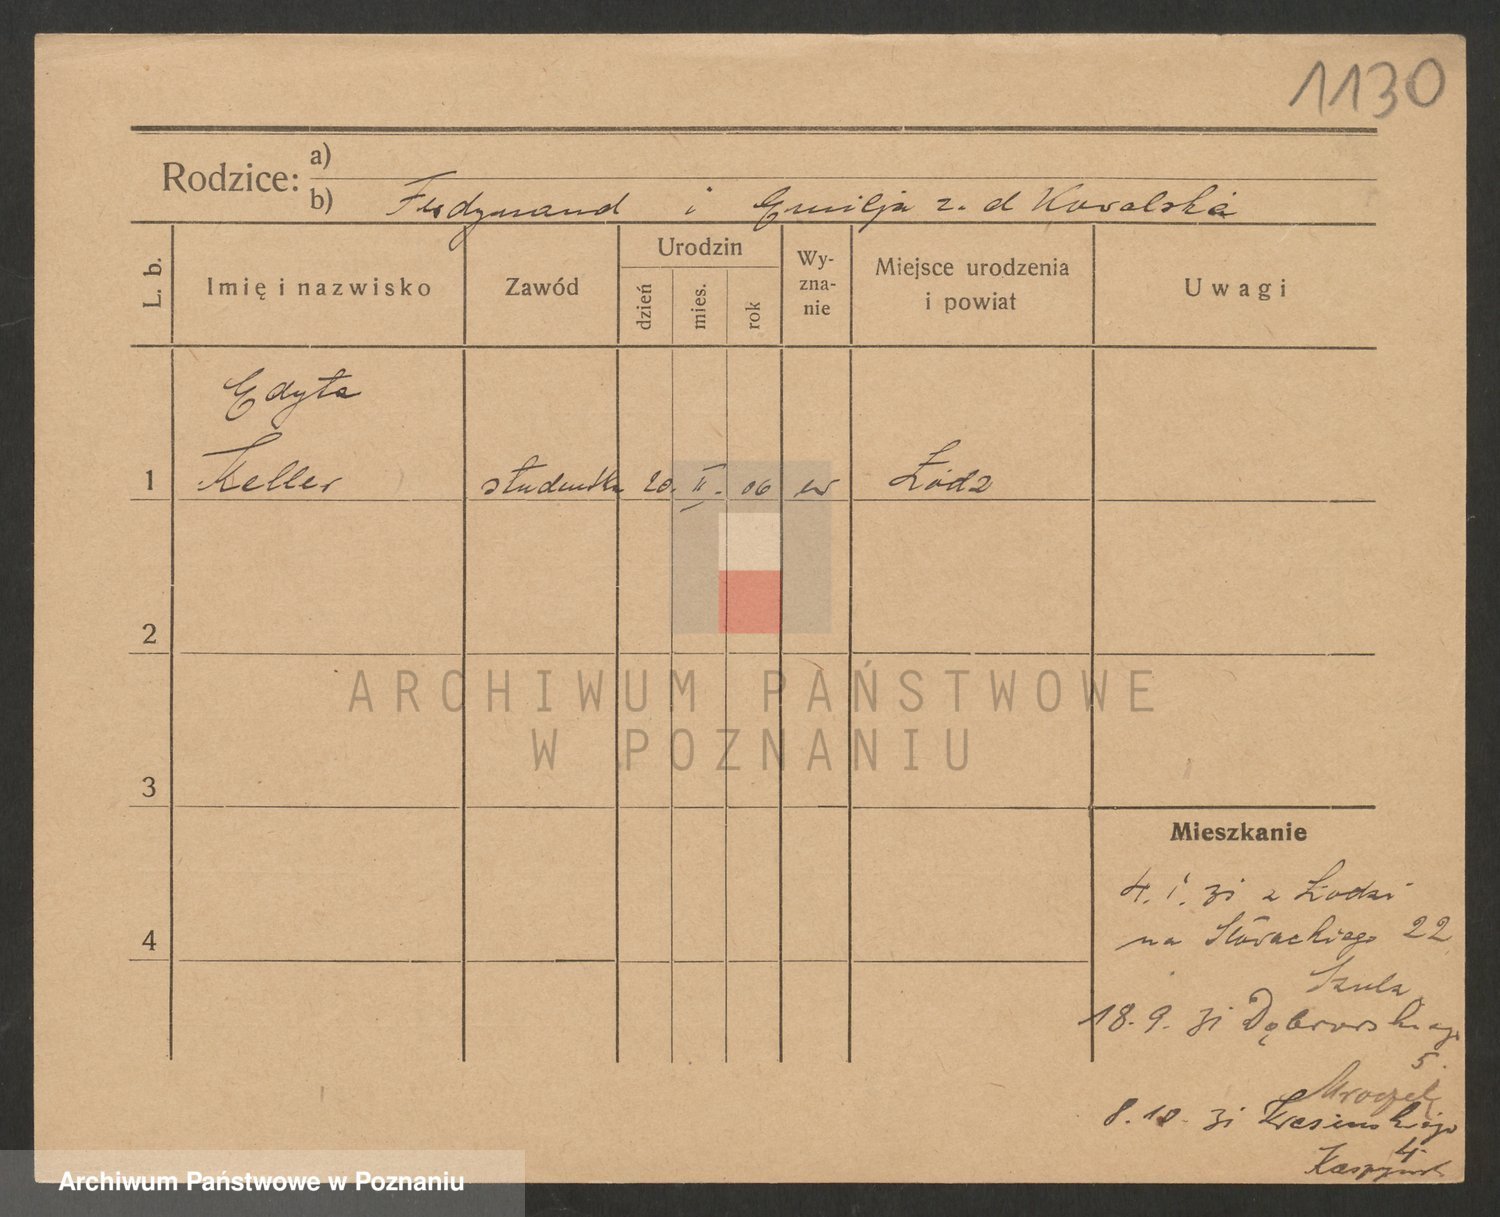 1130
Rodzice: a)
b) Ferdynand i Emilja z. d Kowalska
L. b.
Imię i nazwisko
Zawód
Urodzin
dzień
mies.
rok
Wy-
zna-
nie
Miejsce urodzenia
i powiat
Uwagi
Edyta
1 Keller studentka 20. II. 06 ew Łódz
2
3
4
Mieszkanie
4. I. 31 z Łodzi
na Słowackiego 22
Szulz
18. 9. 31 Dąbrowskiego
5.
8. 10. 31 Krasińskiego
4
ARCHIWUM PAŃSTWOWE
W POZNANIU
Archiwum Państwowe w Poznaniu